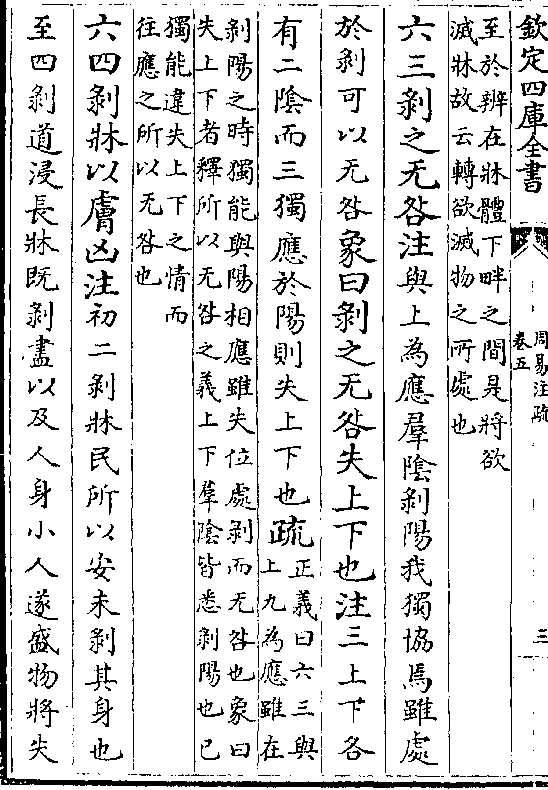 欽定四庫全書
周易注疏
卷五
三
至於辨在牀體下畔之間是將欲
滅牀故云轉欲滅物之所處也
六三剝之无咎注與上為應羣陰剝陽我獨協焉雖處
於剝可以无咎象曰剝之无咎失上下也注三上下各
有二陰而三獨應於陽則失上下也疏
正義曰六三與
上九為應雖在
剝陽之時獨能與陽相應雖失位處剝而无咎也象曰
失上下者釋所以无咎之義上下羣陰皆悉剝陽也已
獨能違失上下之情而
往應之所以无咎也
六四剝牀以膚凶注初二剝牀民所以安未剝其身也
至四剝道浸長牀既剝盡以及人身小人遂盛物將失